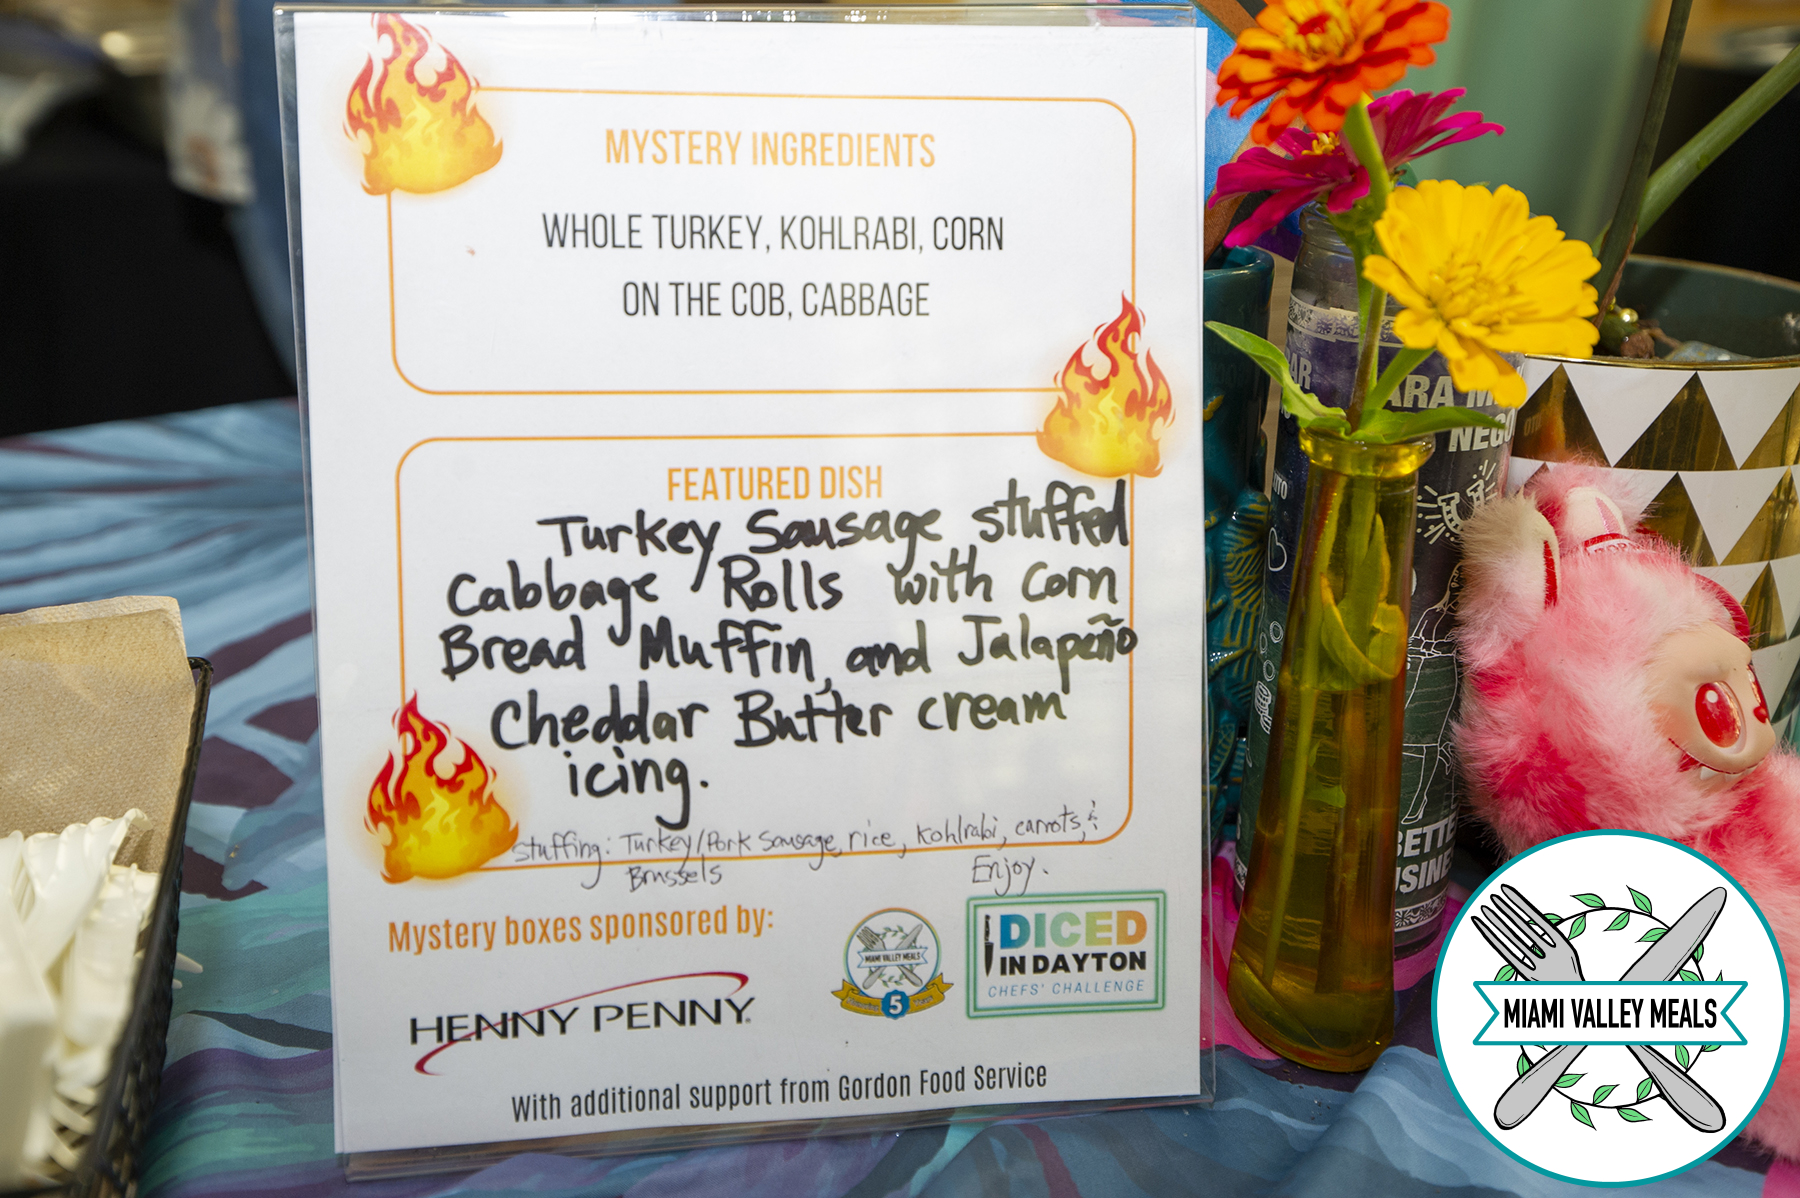 MYSTERY INGREDIENTS
WHOLE TURKEY, KOHLRABI, CORN
ON THE COB, CABBAGE
FEATURED DISH
Turkey Sausage stuffed
Cabbage Rolls with Corn
Bread Muffin, and Jalapeño
Cheddar Butter cream
icing.
stuffing: Turkey/Pork Sausage, rice, Kohlrabi, carrots, &
Brussels
Enjoy.
Mystery boxes sponsored by:
HENNY PENNY
MIAMI VALLEY MEALS
5
DICED
IN DAYTON
CHEFS' CHALLENGE
With additional support from Gordon Food Service
NEGO
MIAMI VALLEY MEALS